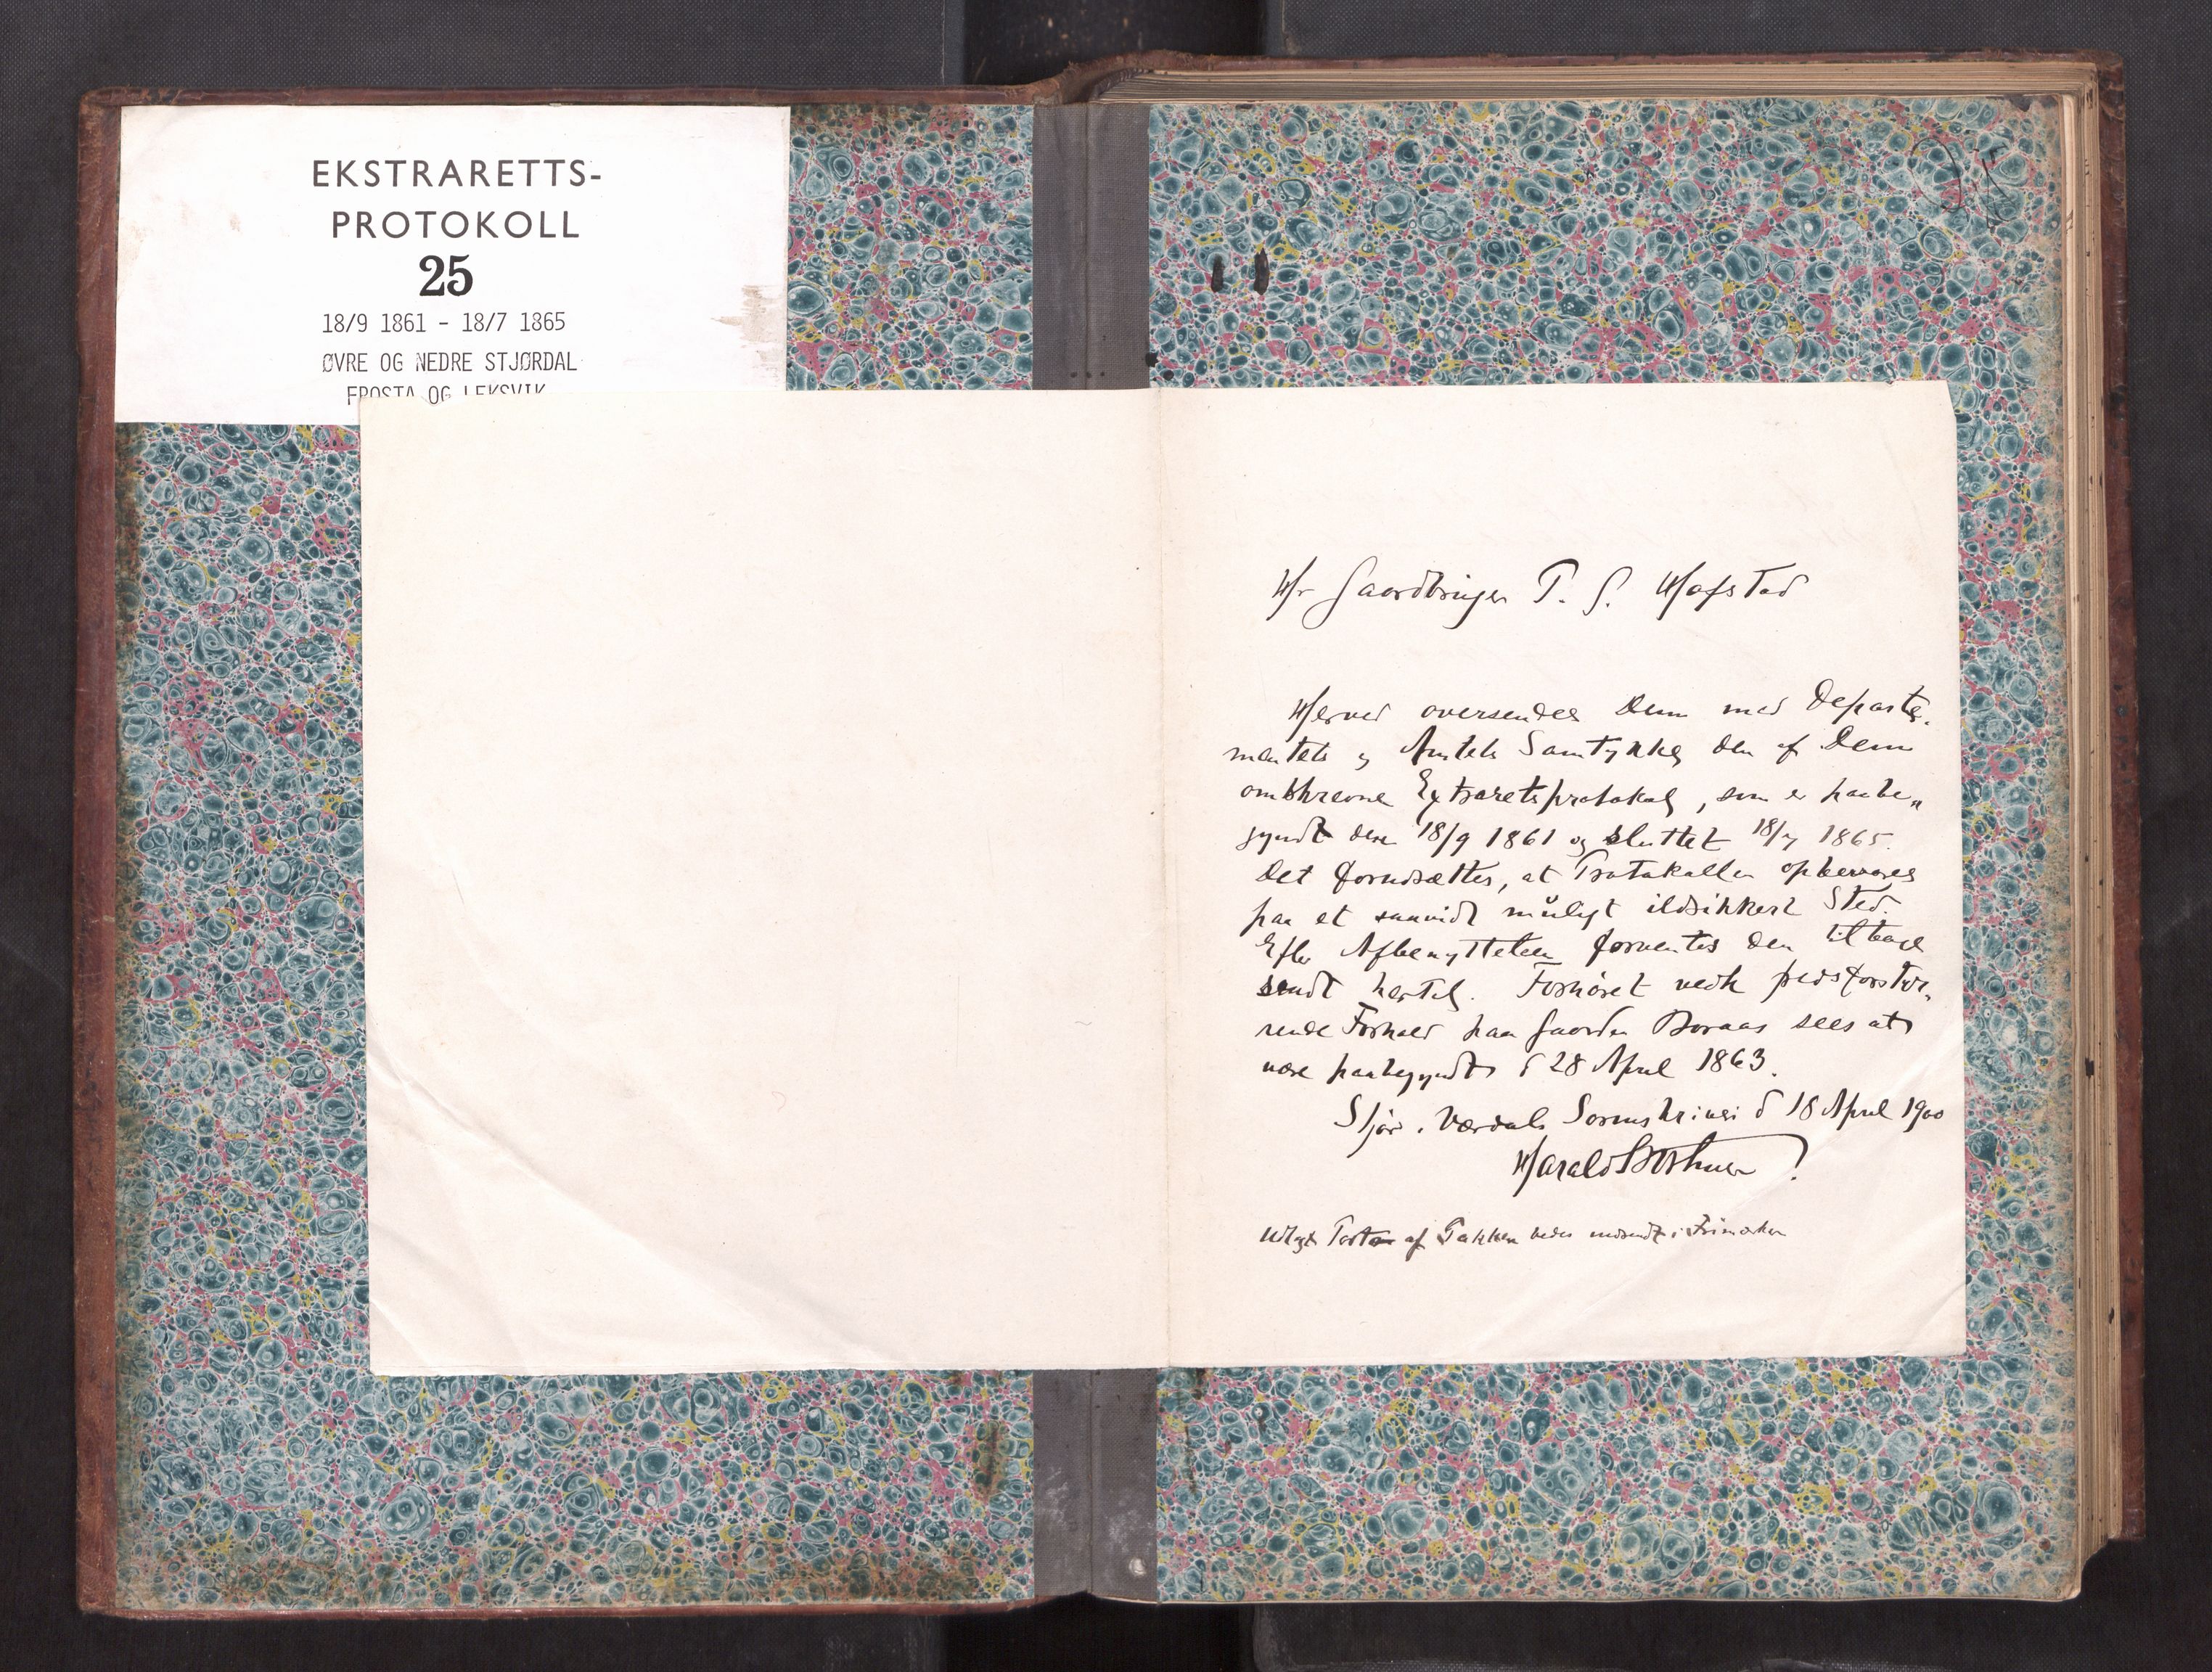 EKSTRARETTS-
PROTOKOLL
25
18/9 1861 - 18/7 1865
ØVRE OG NEDRE STJØRDAL
FROSTA OG LEKSVIK
Hr Gaardbruger P. G. Hofstad
Herved oversendes Dem med Departe-
mentets og Amtets Samtykke den af Dem
omskrevne Extraretsprotokol, som er paabe„
gyndt den 18/9 1861 og sluttet 18/7 1865.
Det forudsættes, at Protokollen opbevares
paa et saavidt muligt ildsikkert Sted.
Efter Afbenyttelsen forventes den tilbage
sendt hertil. Forhøret vedk fredsforstyr„
rende Forhold paa Gaarden Boraas sees at
være paabegyndt d 28 April 1863.
Stjør. Værdals Sorenskriveri d 18 April 1900
Harald Bothner
Udlagt Porto af Pakken bedes indsendt i Frimærker